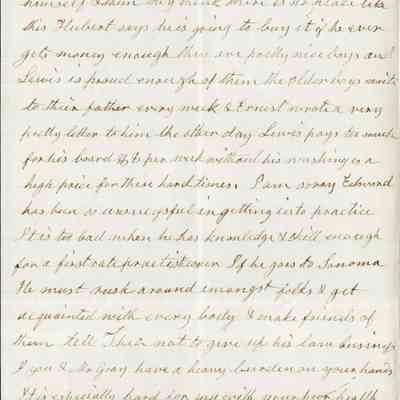 himself & they think there is no place like
this Hubert says he is going to buy it if he ever
gets money enough they are pretty nice boys and
Lewis is proud enough of them the older boys write
to their father every week & Ernest wrote a very
pretty letter to him the other day Lewis pays too much
for his board $6 per week without his washing is a
high price for these hard times. I am sorry Edward
has been so unsuccessful in getting into practice
It is too bad when he has knowledge & skill enough
for a first rate practitioner If he goes to Sonoma
He must rush around amongst folks & get
acquainted with every body & make friends of
them tell him not to give up his law business
you & Mr Gray have a heavy burden on your hands
It is especially hard for you with your poor health